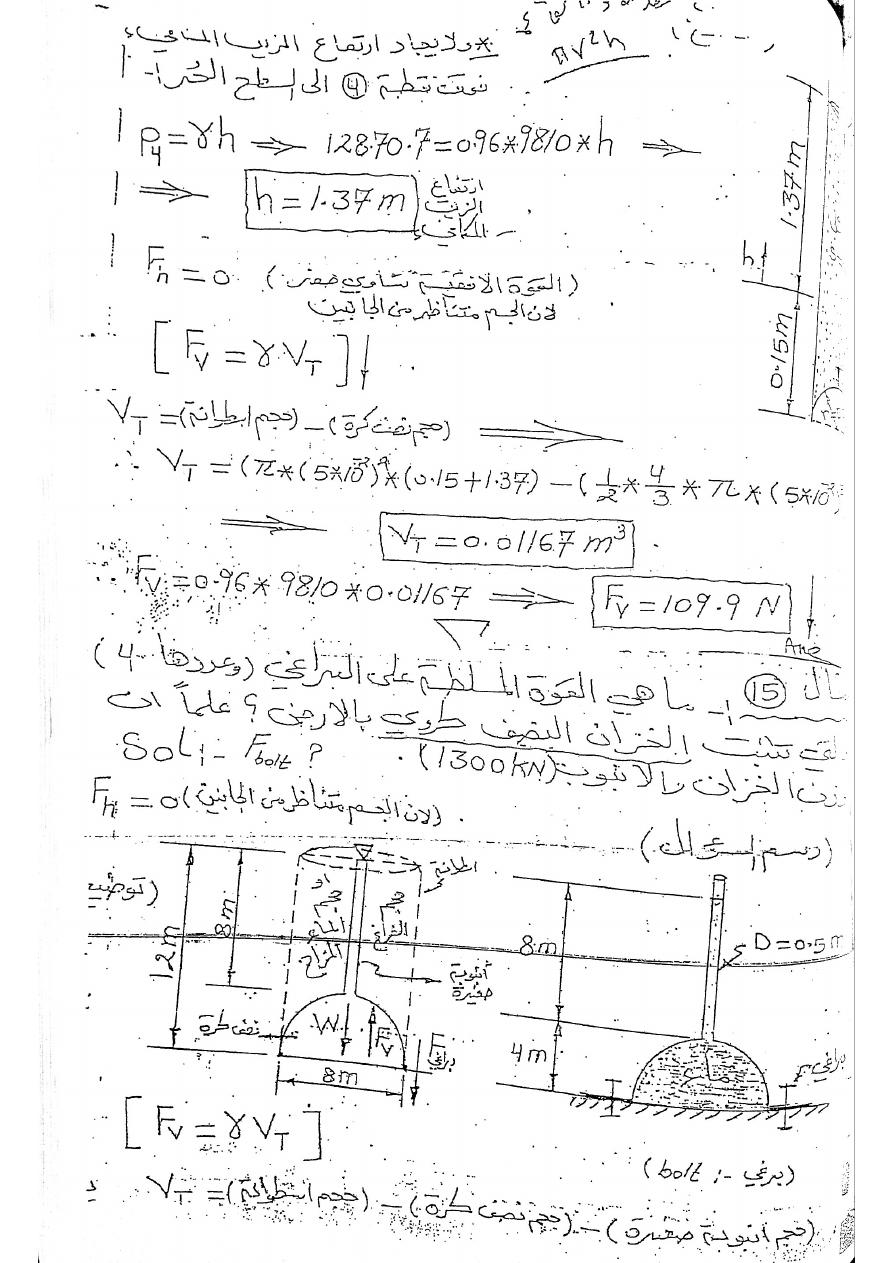 πr²h
* ولايجاد ارتفاع الزيت المكافيء
نعوض نقطة ④ الى السطح الحُر :-
P₄ = γh ⇒ 12870.7 = 0.96*9810*h ⇒
⇒ h = 1.37 m ارتفاع الزيت المكافيء
1.37 m
h
0.15 m
Fh = 0 (القوة الافقية تساوي صفر)
لان الجسم متناظر من الجانبين
[Fv = γ.VT] ↓
VT = (حجم اسطوانة) - (حجم نصف كرة) ⇒
∴ VT = (π*(5*10⁻²)²*(0.15+1.37) - (1/2 * 4/3 * π * (5*10
⇒ VT = 0.01167 m³
∴ Fv = 0.96*9810*0.01167 ⇒ Fv = 109.9 N ↓
Ans
⑮ :- ما هي القوة المسلطة على البراغي (وعددها 4)
تثبت الخزان النصف كروي بالارض؟ علماً ان
الخزان والانبوب (1300 kN).
Sol:- Fbolt ?
Fh = 0 (لان الجسم متناظر من الجانبين).
(رسم السؤال)
(توضيح
12 m
8 m
حجم الفراغ
او
حجم الماء المزاح
انبوبة صغيرة
نصف كرة
W
Fv
F براغي
8m
8m
D = 0.5 m
4m
ماء
F براغي
[Fv = γ VT]
(برغي :- bolt)
VT = (حجم اسطوانة) - (حجم نصف كرة) - (حجم انبوبة صغيرة)